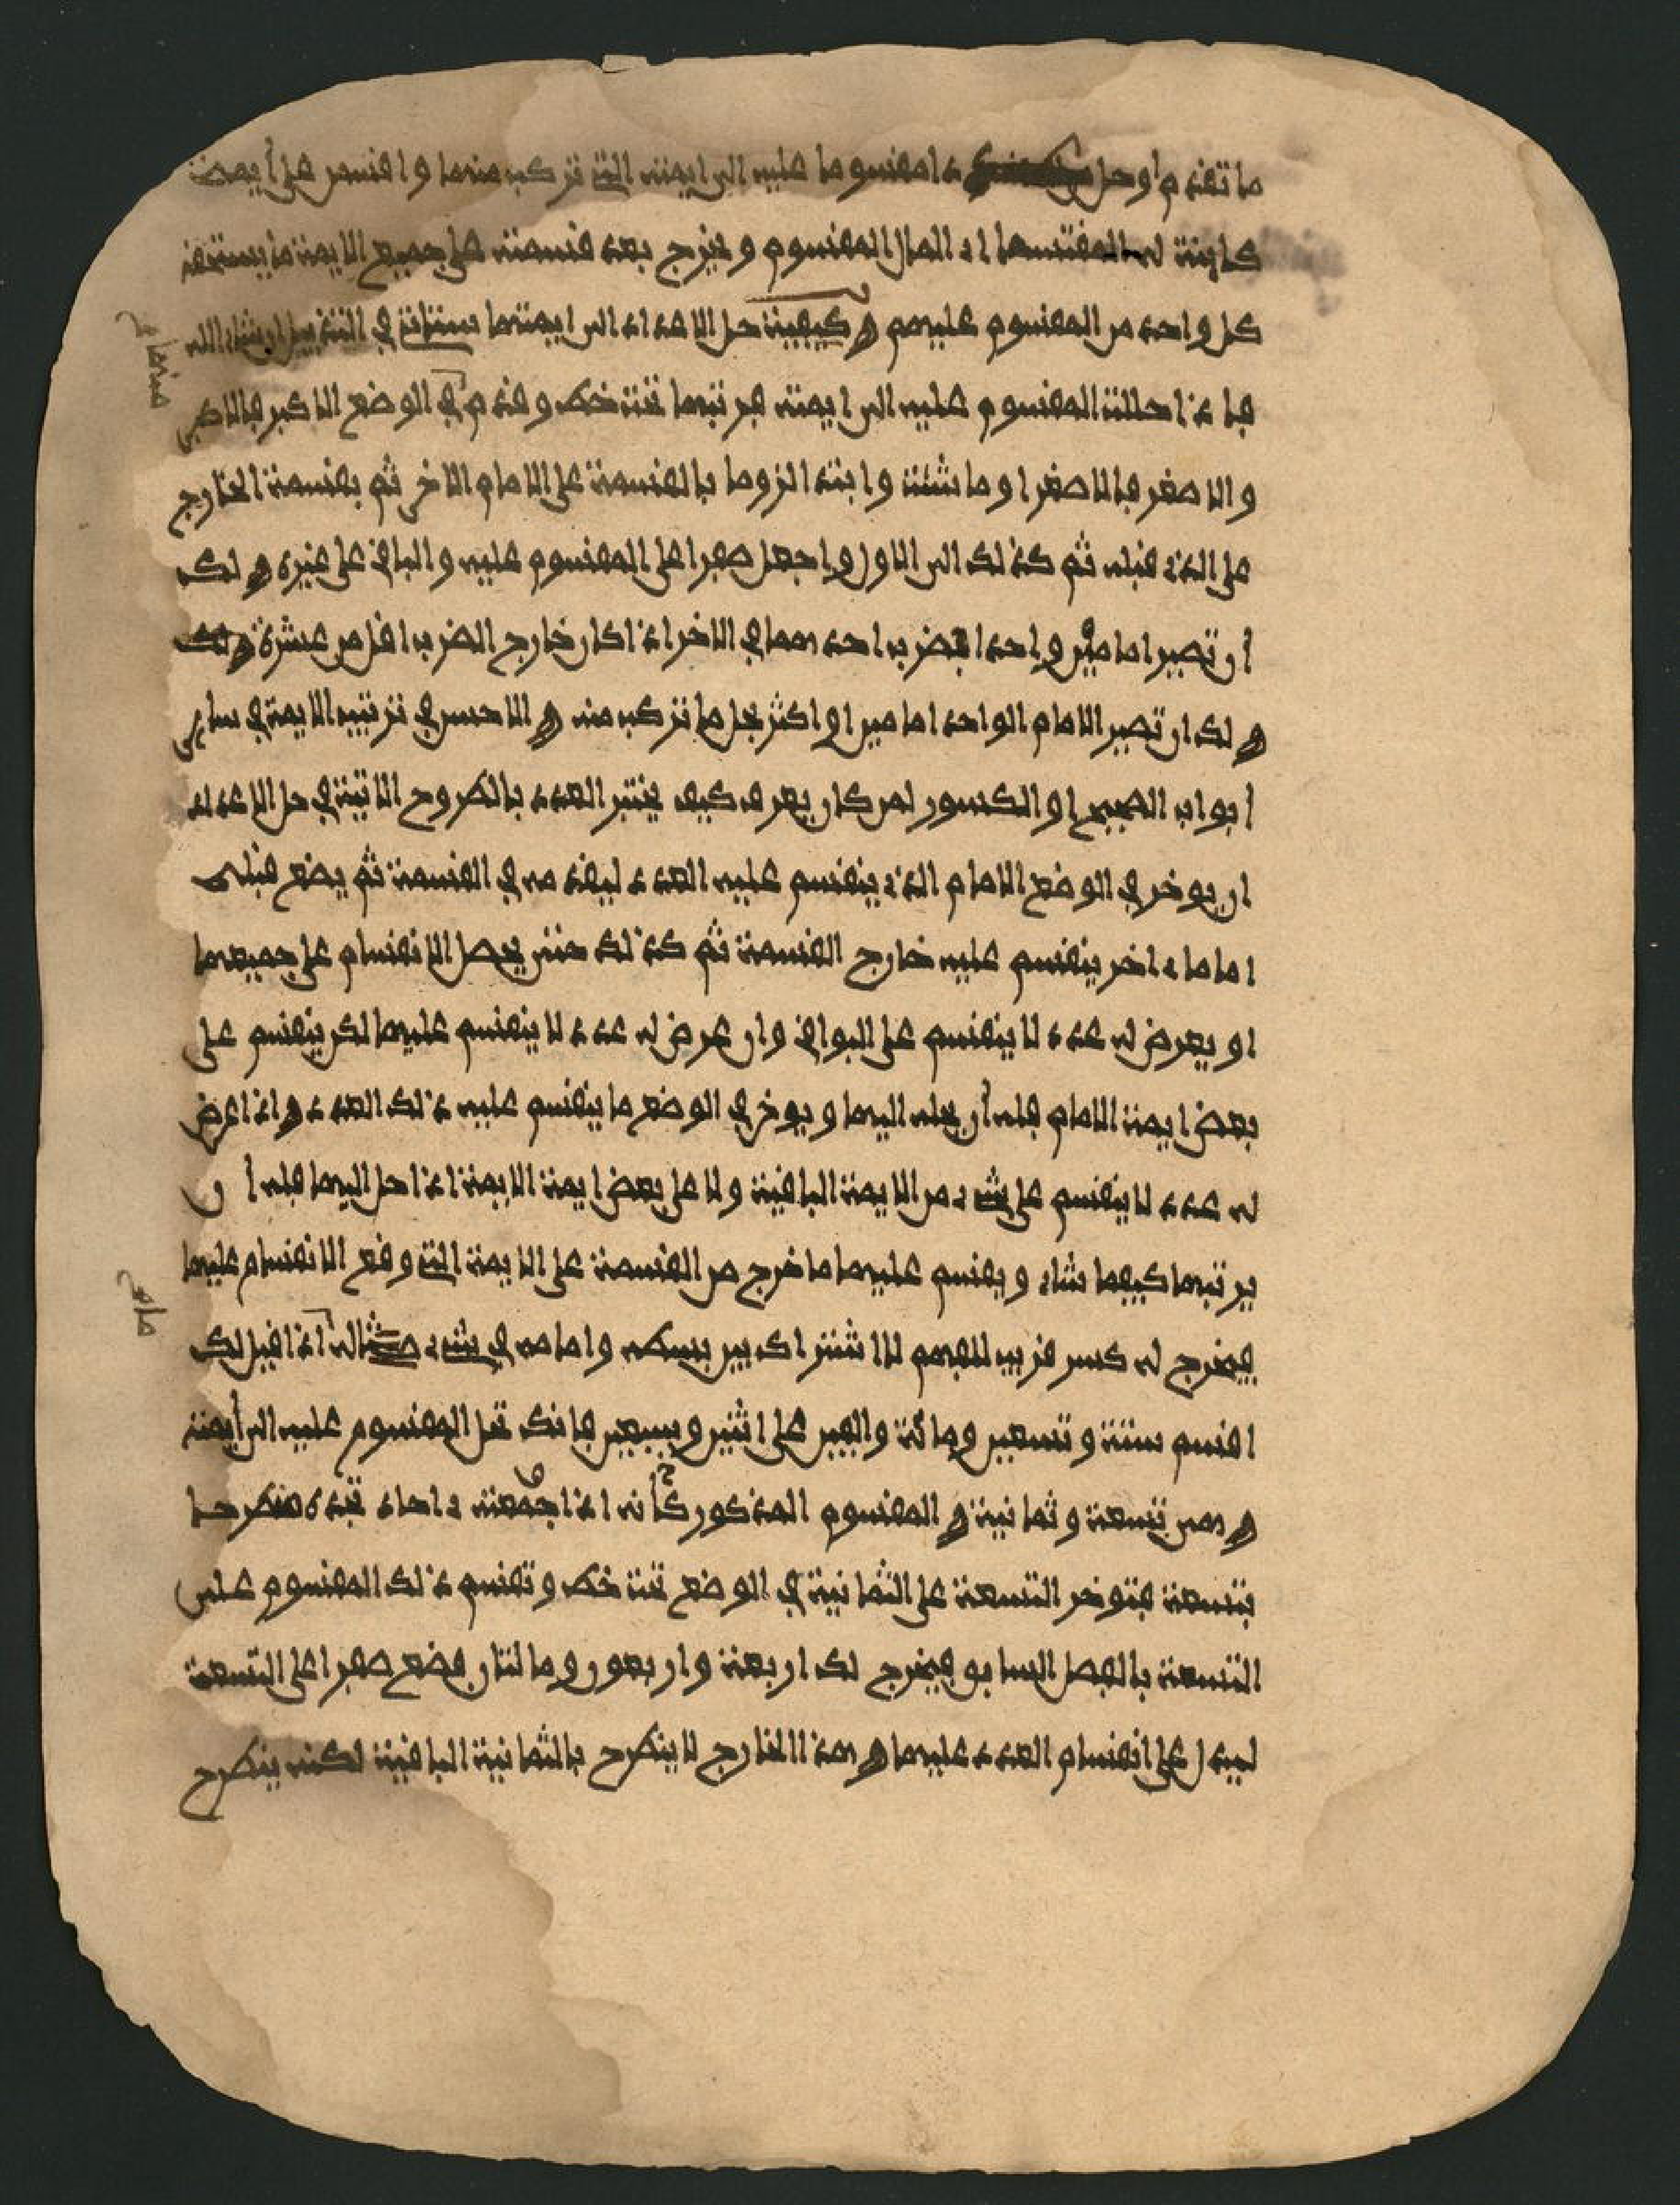 ما تقدم أو حل امقسوما عليه الى ايمته التي تركب منها واقسم على أيمة
كاينة له المقتسمها اي المال المقسوم و يخرج بعد قسمته على جميع الايمة ما يستحقه
كل واحد من المقسوم عليهم و كيفية حل الاعداد الى ايمتها ستاتي في التذييل ان شاء الله
فاذا حللت المقسوم عليه الى ايمته فرتبها تحت خط وقدم في الوضع الاكبر فالاكبر
والاصغر فالاصغر او ما شئت وابتد الزوما بالقسمة على الامام الاخر ثم بقسمة الخارج
على الذي قبله ثم كذلك الى الاول واجعل صفرا على المقسوم عليه والباقي على غيره و لك
أن تصير امامين واحدا بضرب احدهما في الاخر اذا كان خارج الضرب اقل من عشرة و لك
و لك ان تصير الامام الواحد امامين او اكثر بحل ما تركب منه و الاحسن في ترتيب الايمة في ساير
أبواب الصحيح او الكسور لمن كان يعرف كيف يختبر العدد بالطروح الاتية في حل الاعداد
ان يوخر في الوضع الامام الذي ينقسم عليه العدد ليقدمه في القسمة ثم يضع قبله
اماما اخر ينقسم عليه خارج القسمة ثم كذلك حتى يحصل الانقسام على جميعها
او يعرض له عدد لا ينقسم على البواقي وان عرض له عدد لا ينقسم عليها لكن ينقسم على
بعض ايمة الامام فله أن يحله اليها و يوخر في الوضع ما ينقسم عليه ذلك العدد و اذا عرض
له عدد لا ينقسم على شيء من الايمة الباقية ولا على بعض ايمة الايمة اذا حل اليها فله أن
يرتبها كيفما شاء ويقسم عليها ما خرج من القسمة على الايمة التي وقع الانقسام عليها
فيخرج له كسر قريب للفهم لا اشتراك بين بسطه وامامه في شيء مثاله اذا قيل لك
اقسم ستة وتسعين ومائة والفين على اثنين وسبعين فانك تحل المقسوم عليه الى أيمته
و هي تسعة وثمانية و المقسوم المذكور كأنه اذا جمعته احاد تجده منطرحا
بتسعة فتوخر التسعة على الثمانية في الوضع تحت خط وتقسم ذلك المقسوم على
التسعة بالفصل السابق فيخرج لك اربعة واربعون ومائتان فضع صفرا على التسعة
ليدل على انقسام العدد عليها و هذا الخارج لا ينطرح بالثمانية الباقية لكنه ينطرح